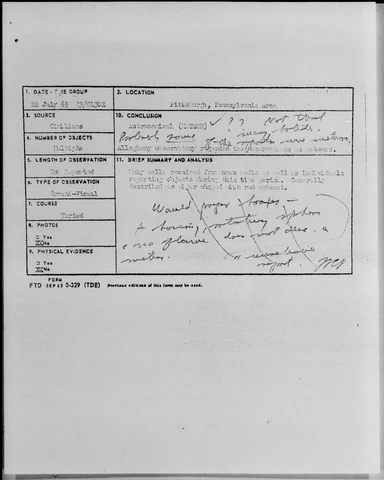 1. DATE - TIME GROUP
22 July 65 23/0130Z
2. LOCATION
Pittsburgh, Pennsylvania Area
3. SOURCE
Civilians
10. CONCLUSION
Astronomical (METEOR) ✓ ? ? Not that
many bolids.
Probably some of the reports were meteors,
Allegheny Observatory regarded the observations as meteors.
4. NUMBER OF OBJECTS
Multiple
5. LENGTH OF OBSERVATION
Not Reported
11. BRIEF SUMMARY AND ANALYSIS
Many calls received from news media as well as individuals
reporting objects during this time period. Generally
described as cigar shaped with red exhaust.
6. TYPE OF OBSERVATION
Ground-Visual
7. COURSE
Varied
8. PHOTOS
□ Yes
No
9. PHYSICAL EVIDENCE
□ Yes
No
Would prefer hoaxes -
A
a red flame does not describe a
meteor. or unreliable
report.
FORM
FTD SEP 63 0-329 (TDE) Previous editions of this form may be used.